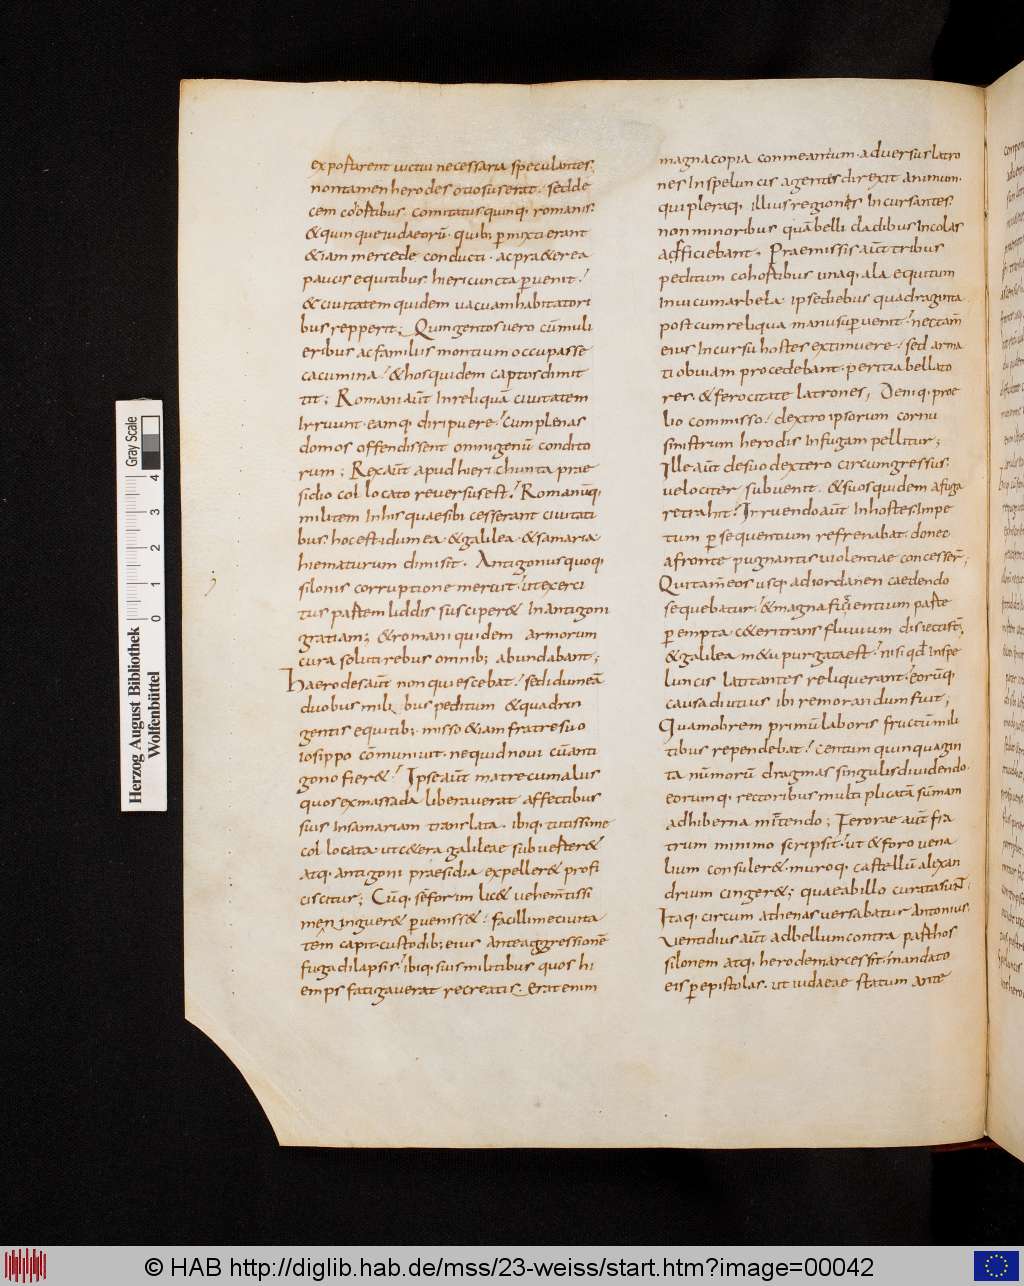 exportarent uictui necessaria speculantes;
non tamen herodes otiosus erat; sed de
cem cohortibus comitatus quinq; romanis;
& quinque iudaeorū quib; p̄mixti erant
& iam mercede conducti ac pra&erea
paucis equitibus hieri cunta p̄uenit;
& ciuitatem quidem uacuam habitatori
bus repperit; Quingentos uero cū muli
eribus ac familiis montium occupasse
cacumina; & hos quidem captos dimit
tit; Romani aūt In reliquā ciuitatem
Irruunt eamq; diripuere; cum plenas
domos offendissent omnigenū condito
rum; Rex aūt apud hieri chunta prae
sidio col locato reuersus est; Romanūq;
militem In his quae sibi cesserant ciuitati
bus hoc est idumea & galilea & samaria
hiematurum dimisit. Antigonus quoq;
silonis corruptione meruit; ut exerci
tus partem liddis susciper& In antigoni
gratiam; & romani quidem armorum
cura soluti rebus omnib; abundabant;
Haerodes aūt non quiescebat; sed idumeā
duobus mili bus peditum & quadrin
gentis equitib; misso & iam fratre suo
iosippo cōmuniuit. ne quid noui cū anti
gono fier&; Ipse aūt matre cum aliis
quos ex massada liberauerat affectibus
suis In samariam translata. ibiq; tutissime
col locata ut c&era galileae subuerter&
atq; antigoni praesidia expeller& profi
ciscitur; Cūq; sēforim lic& uehemtissi
me ninguer& p̄uenisse&; facillime ciuita
tem capit custodib; eius ante aggressionē
fuga dilapsis; ibiq; suis militibus quos hi
emps fatigauerat recreatis. Erat enim
magna copia conmeantum. aduersus latro
nes In speluncis agentes direxit animum.
qui pleraq; illius regiones Incursantes
non minoribus quā belli cladibus Incolas
adficiebant. Praemissis aūt tribus
peditum cohortibus unaq; ala equitum
In uicum arbela ipse diebus quadraginta
post cum reliqua manu sup̄uenit; nec tam̄
eius Incursu hostes extimuere; sed arma
ti obuiam procedebant peritia bellato
res & ferocitate latrones; Deniq; proe
lio commisso; dextro ipsorum cornu
sinistrum herodis In fugam pellitur;
Ille aūt de suo dextero circumgressus
uelociter subuenit. & suos quidem a fuga
retrahit; Irruendo aūt In hostes. Impe
tum p̄sequentium refrenabat. donec
a fronte pugnantis uiolentiae concesser̄;
Qui tam̄ eos usq; ad iordanen caedendo
sequebatur; & magna fugientium parte
p̄empta c&eri trans fluuium disiecti st̄,
& galilea m&u purgata est; nisi qd̄ In spe
luncis latitantes reliquerant; eorūq;
causa diutius ibi remorandum fuit;
Quamobrem primū laboris fructū mili
tibus rependebat; centum quinquagin
ta nūmorū dragmas singulis diuidendo
eorumq; rectoribus multi plicatā sūmam
ad hiberna mittendo; Ferorae aūt fra
trum minimo scripsit; ut & foro uena
lium consuler& muroq; castellū alexan
drium cinger&; quae ab illo curata sunt;
Itaq; circum athenas uersabatur antonius.
Uentidius aūt ad bellum contra parthos
silonem atq; herodem arcessit. mandato
eis p̄ epistolas. ut iudaeae statum ante
Herzog August Bibliothek
Wolfenbüttel
Gray Scale
0 1 2 3 4
© HAB http://diglib.hab.de/mss/23-weiss/start.htm?image=00042